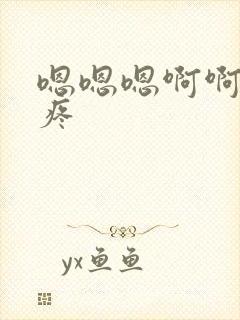 嗯嗯嗯啊啊
疼
yx鱼鱼